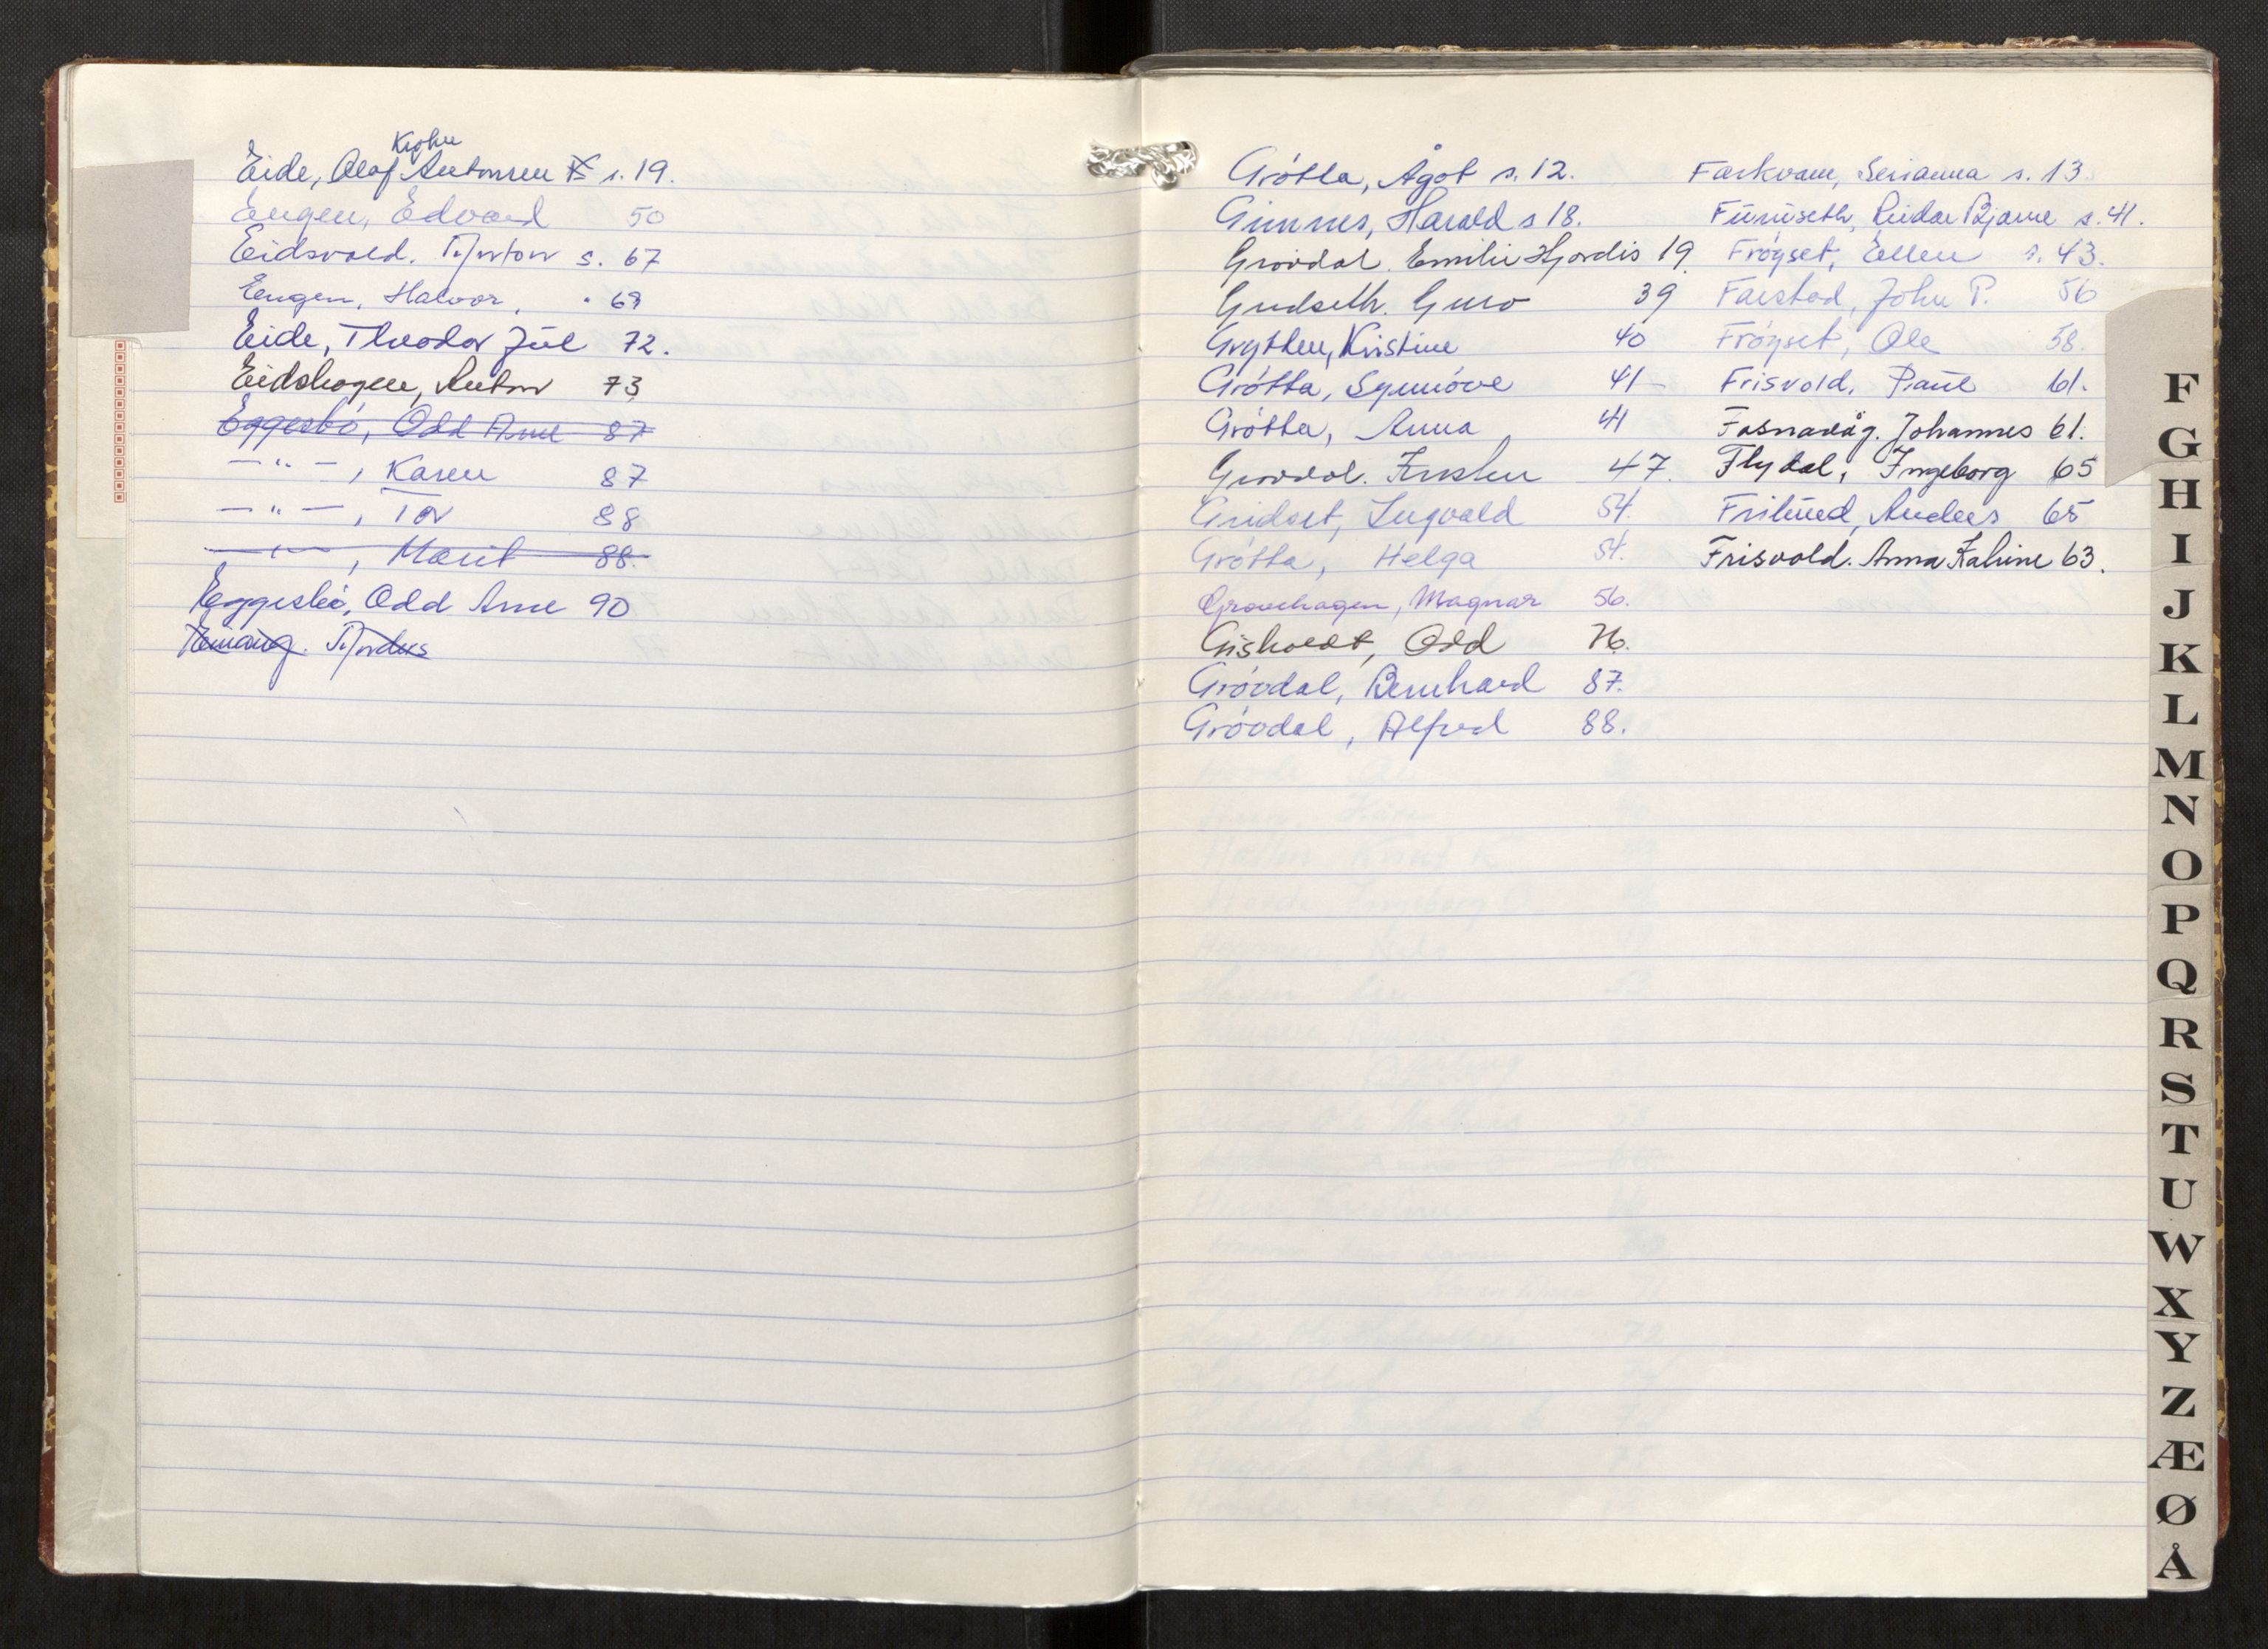 Krohn
Eide, Olaf Antonsen K s. 19.
Engen, Edvard 50
Eidsvold. Morton s. 67
Engen, Halvor, " 69
Eide, Theodor Jul 72.
Eidshagen, Anton 73
Eggesbö, Odd Arne 87
— " —, Karen 87
— " —, Tor 88
— " —, Marit 88.
Eggesbö, Odd Arne 90
Grótta, Ågot s. 12.
Gimnes, Harald s 18.
Grovdal. Emilie Hjordis 19.
Gudseth. Guro 39
Grytten, Kristine 40
Grótta, Synnóve 41
Grótta, Anna 41
Grovdal. Kristen 47.
Gridset, Ingvald 54.
Grótta, Helga 54.
Grovehagen, Magnar 56.
Gisholdt, Odd 76.
Gróvdal, Bernhard 87.
Gróvdal, Alfred 88.
Farkvam, Serianna s. 13.
Furuseth, Reidar Bjarne s. 41.
Frógset, Ellen s. 43.
Farstad, John P. 56
Frógset, Ole 58.
Frisvold, Paul 61.
Fosnavåg. Johannes 61.
Flydal, Ingeborg 65
Frilund, Anders 65
Frisvold. Anna Katrine 63.
F
G
H
I
J
K
L
M
N
O
P
Q
R
S
T
U
W
X
Y
Z
Æ
Ø
Å